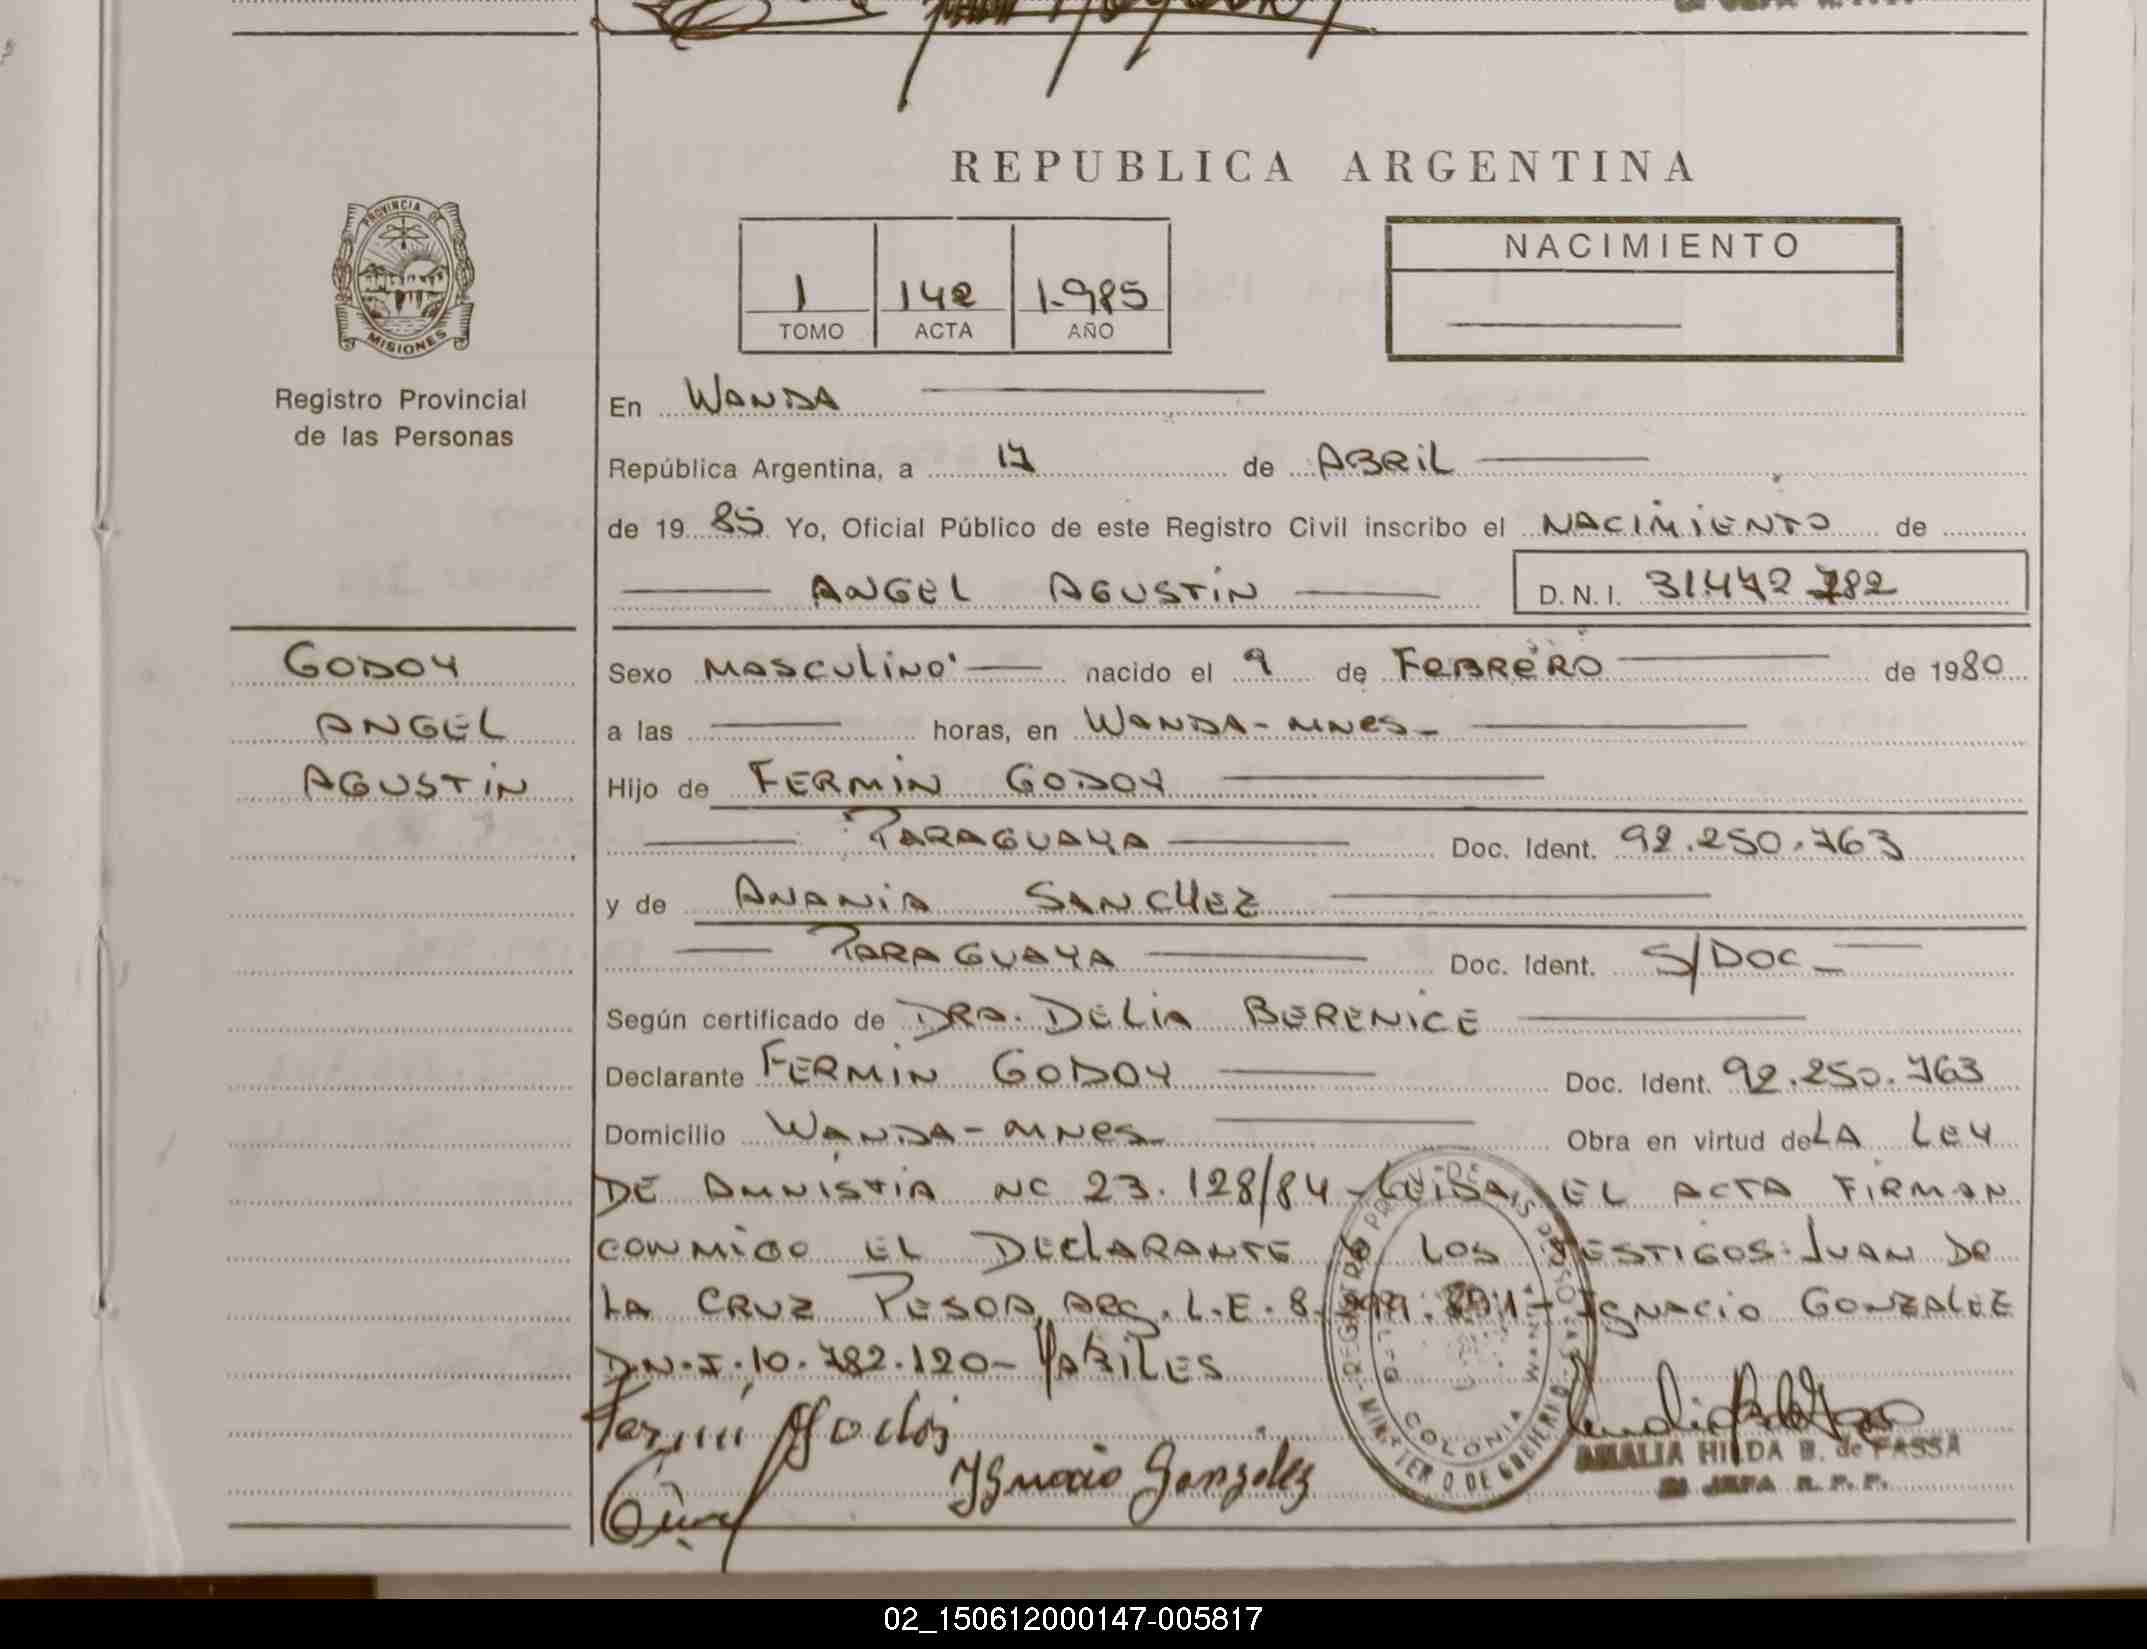 REPUBLICA ARGENTINA
PROVINCIA DE
MISIONES
Registro Provincial
de las Personas
1 142 1.985
TOMO ACTA AÑO
NACIMIENTO
En WANDA
República Argentina, a 17 de ABRIL
de 1985 Yo, Oficial Público de este Registro Civil inscribo el NACIMIENTO de
ANGEL AGUSTIN D.N.I. 31.472 782
GODOY
ANGEL
AGUSTIN
Sexo MASCULINO nacido el 9 de FEBRERO de 1980
a las horas, en WANDA-MNES-
Hijo de FERMIN GODOY
PARAGUAYA Doc. Ident. 92.250.763
y de ANANIA SANCHEZ
PARAGUAYA Doc. Ident. S/DOC-
Según certificado de DRA. DELIA BERENICE
Declarante FERMIN GODOY Doc. Ident. 92.250.763
Domicilio WANDA-MNES Obra en virtud de LA LEY
DE AMNISTIA NC 23.128/84-LEIDA EL ACTA FIRMAN
CONMIGO EL DECLARANTE LOS TESTIGOS: JUAN DE
LA CRUZ PESOA, ARG. L.E. 8. IGNACIO GONZALEZ
D.N.I. 10.782.120- HABILES
Fermin Godoy
Ignacio Gonzalez
COLONIA WANDA
MINISTERIO DE GOBIERNO
AMALIA HILDA B. de FASSA
JEFA R. P. P.
02_150612000147-005817